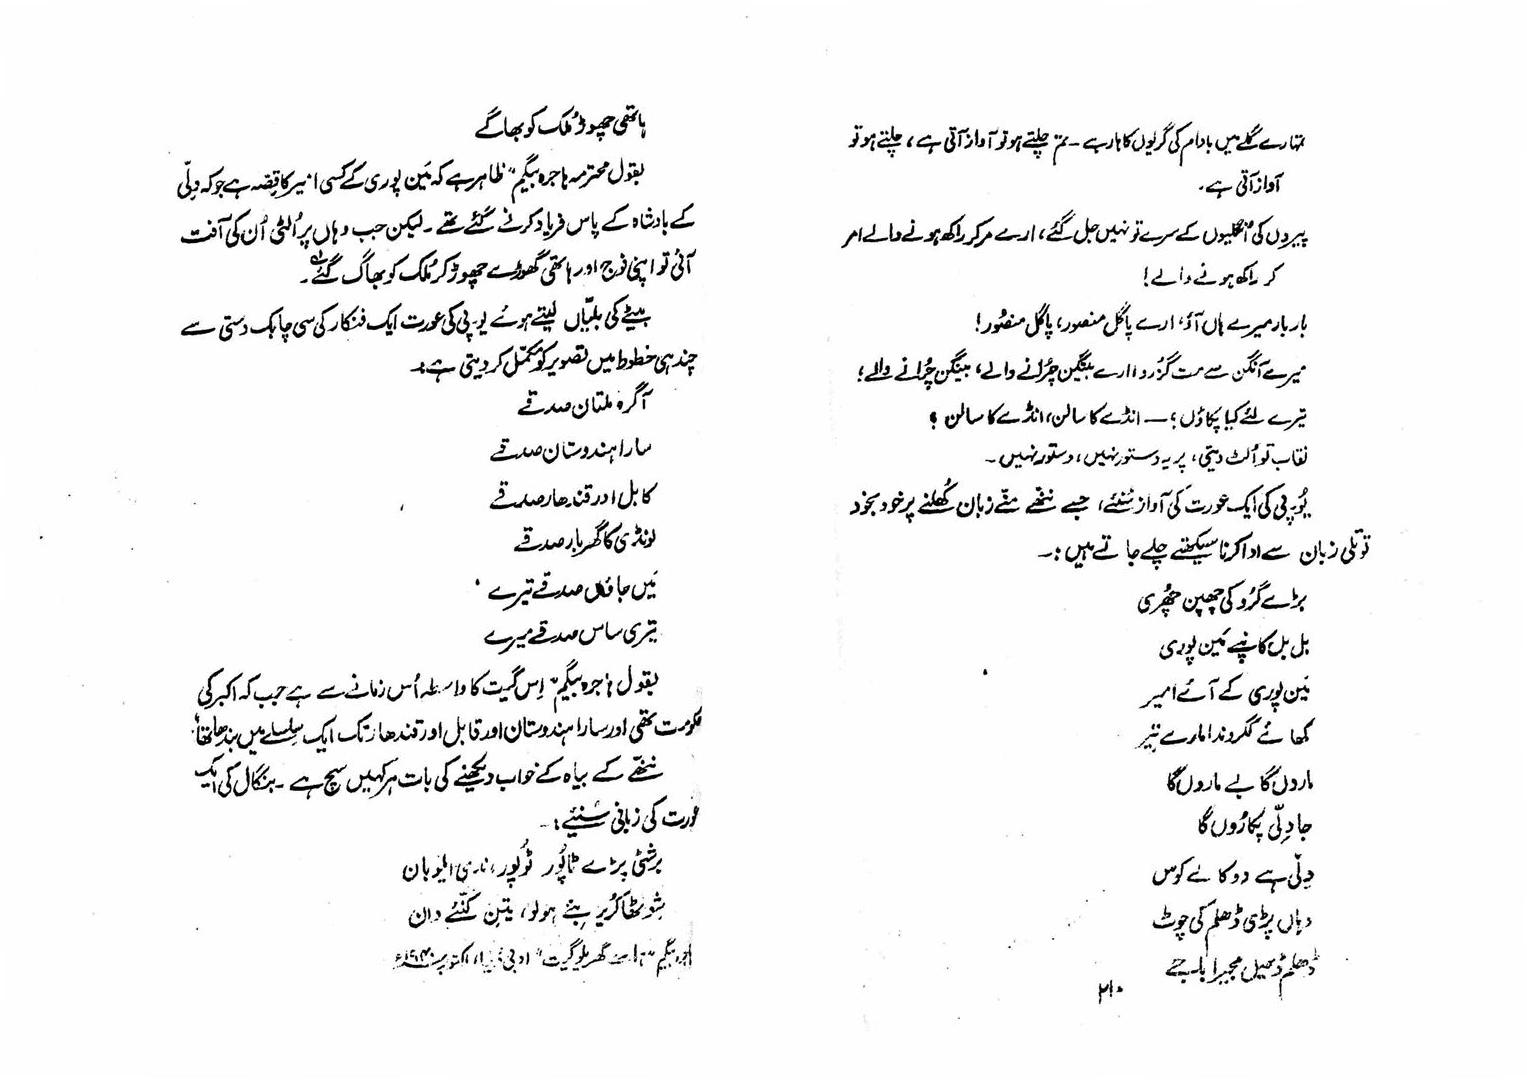 تمہارے گلے میں بادام کی گریوں کا ہار ہے ۔ تم چلتے ہو تو آواز آتی ہے، چلتے ہو تو
آواز آتی ہے۔
پیروں کی اُنگلیوں کے سرے تو نہیں جل گئے، ارے مر کر راکھ ہونے والے امر
کر راکھ ہونے والے!
بار بار میرے ہاں آؤ، ارے پاگل منصور، پاگل منصُور!
میرے آنگن سے مت گزرو! ارے بینگن چُرانے والے، بینگن چُرانے والے؛
تیرے لئے کیا پکاؤں؛ — انڈے کا سالن، انڈے کا سالن ؟
نقاب تو اُلٹ دیتی، پر یہ دستور نہیں، دستور نہیں ۔
یُو۔پی کی ایک عورت کی آواز سُنئے، جسے ننھے مُنّے زبان کُھلنے پر خود بخود
توتلی زبان سے ادا کرنا سیکھتے چلے جاتے ہیں:۔
بڑے گُرو کی چھپن چُھری
بل بل کانپے مَین پوری
مَین پوری کے آئے امیر
کھائے ککروندا مارے تیر
ماروں گا بے ماروں گا
جا دِلّی پکارُوں گا
دِلّی ہے دو کالے کوس
وہاں پڑی ڈھلم کی چوٹ
ڈھلم ڈھیل مجیرا باجے
۲۱۰
ہاتھی چھوڑ مُلک کو بھاگے
بقول محترمہ ہاجرہ بیگم "ظاہر ہے کہ مَین پوری کے کسی امیر کا قِصّہ ہے جو کہ دِلّی
کے بادشاہ کے پاس فریاد کرنے گئے تھے ۔ لیکن جب وہاں پر اُلٹی اُن کی آفت
آئی تو اپنی فوج اور ہاتھی گھوڑے چھوڑ کر مُلک کو بھاگ گئے"۔
بیٹے کی بلیّاں لیتے ہوئے یو۔پی کی عورت ایک فنکار کی سی چابک دستی سے
چند ہی خطوط میں تصویر کو مکمّل کر دیتی ہے:۔
آگرہ ملتان صدقے
سارا ہندوستان صدقے
کابل اور قندھار صدقے
لونڈی کا گھر بار صدقے
مَیں جاؤں صدقے تیرے
تیری ساس صدقے میرے
بقول ہاجرہ بیگم "اِس گیت کا واسطہ اُس زمانے سے ہے جب کہ اکبر کی
حکومت تھی اور سارا ہندوستان اور قابل اور قندھار تک ایک سِلسلے میں بندھا تھا"
ننھّے کے بیاہ کے خواب دیکھنے کی بات ہر کہیں سچ ہے ۔ بنگال کی ایک
عورت کی زبانی سُنئے:۔
برشٹی پڑے ٹاپُور ٹُوپُور، ندی ایلو بان
شِو ٹھاکُریر بئے ہولو، تین کنّئے دان
ہاجرہ بیگم گھریلو گیت" ادبی دُنیا، اکتوبر ۱۹۴۰ء